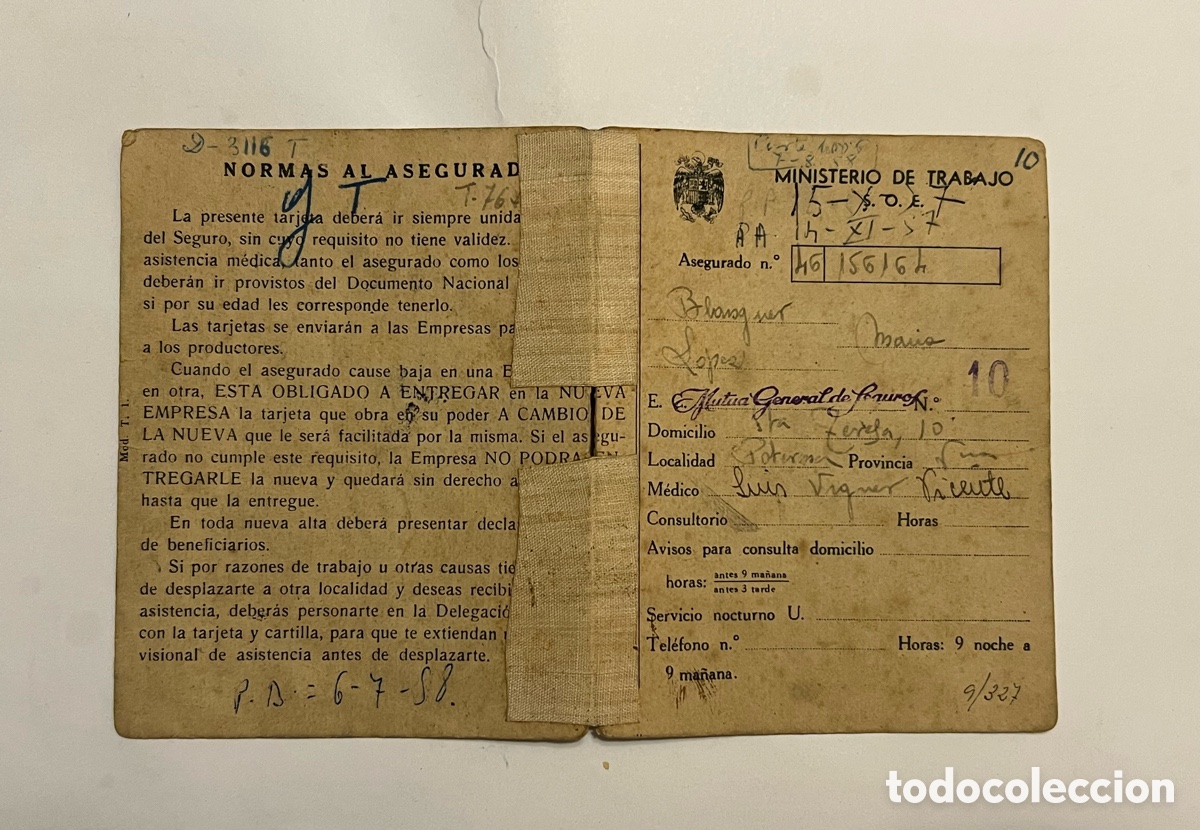 D-3116 T
NORMAS AL ASEGURAD
T-76
y T
La presente tarjeta deberá ir siempre unida
del Seguro, sin cuyo requisito no tiene validez.
asistencia médica, tanto el asegurado como los
deberán ir provistos del Documento Nacional
si por su edad les corresponde tenerlo.
Las tarjetas se enviarán a las Empresas pa
a los productores.
Cuando el asegurado cause baja en una E
en otra, ESTA OBLIGADO A ENTREGAR en la NUEVA
EMPRESA la tarjeta que obra en su poder A CAMBIO DE
LA NUEVA que le será facilitada por la misma. Si el asegu-
rado no cumple este requisito, la Empresa NO PODRA EN
TREGARLE la nueva y quedará sin derecho a
hasta que la entregue.
En toda nueva alta deberá presentar decla
de beneficiarios.
Si por razones de trabajo u otras causas tie
de desplazarte a otra localidad y deseas recibi
asistencia, deberás personarte en la Delegació
con la tarjeta y cartilla, para que te extiendan
visional de asistencia antes de desplazarte.
P.B.= 6-7-58.
Mod. T. 1.
7-8-58
10
MINISTERIO DE TRABAJO
S. O. E.
PA. 14-XI-57
Asegurado n.° 46 156164
Blasquer
Maria
López
10
E. Mutua General de Seguros N.°
Domicilio Sta Teresa, 10
Localidad Paterna Provincia
Médico Luis Viguer Vicente
Consultorio Horas
Avisos para consulta domicilio
horas: antes 9 mañana
antes 3 tarde
Servicio nocturno U.
Teléfono n.° Horas: 9 noche a
9 mañana.
9/327
todocoleccion